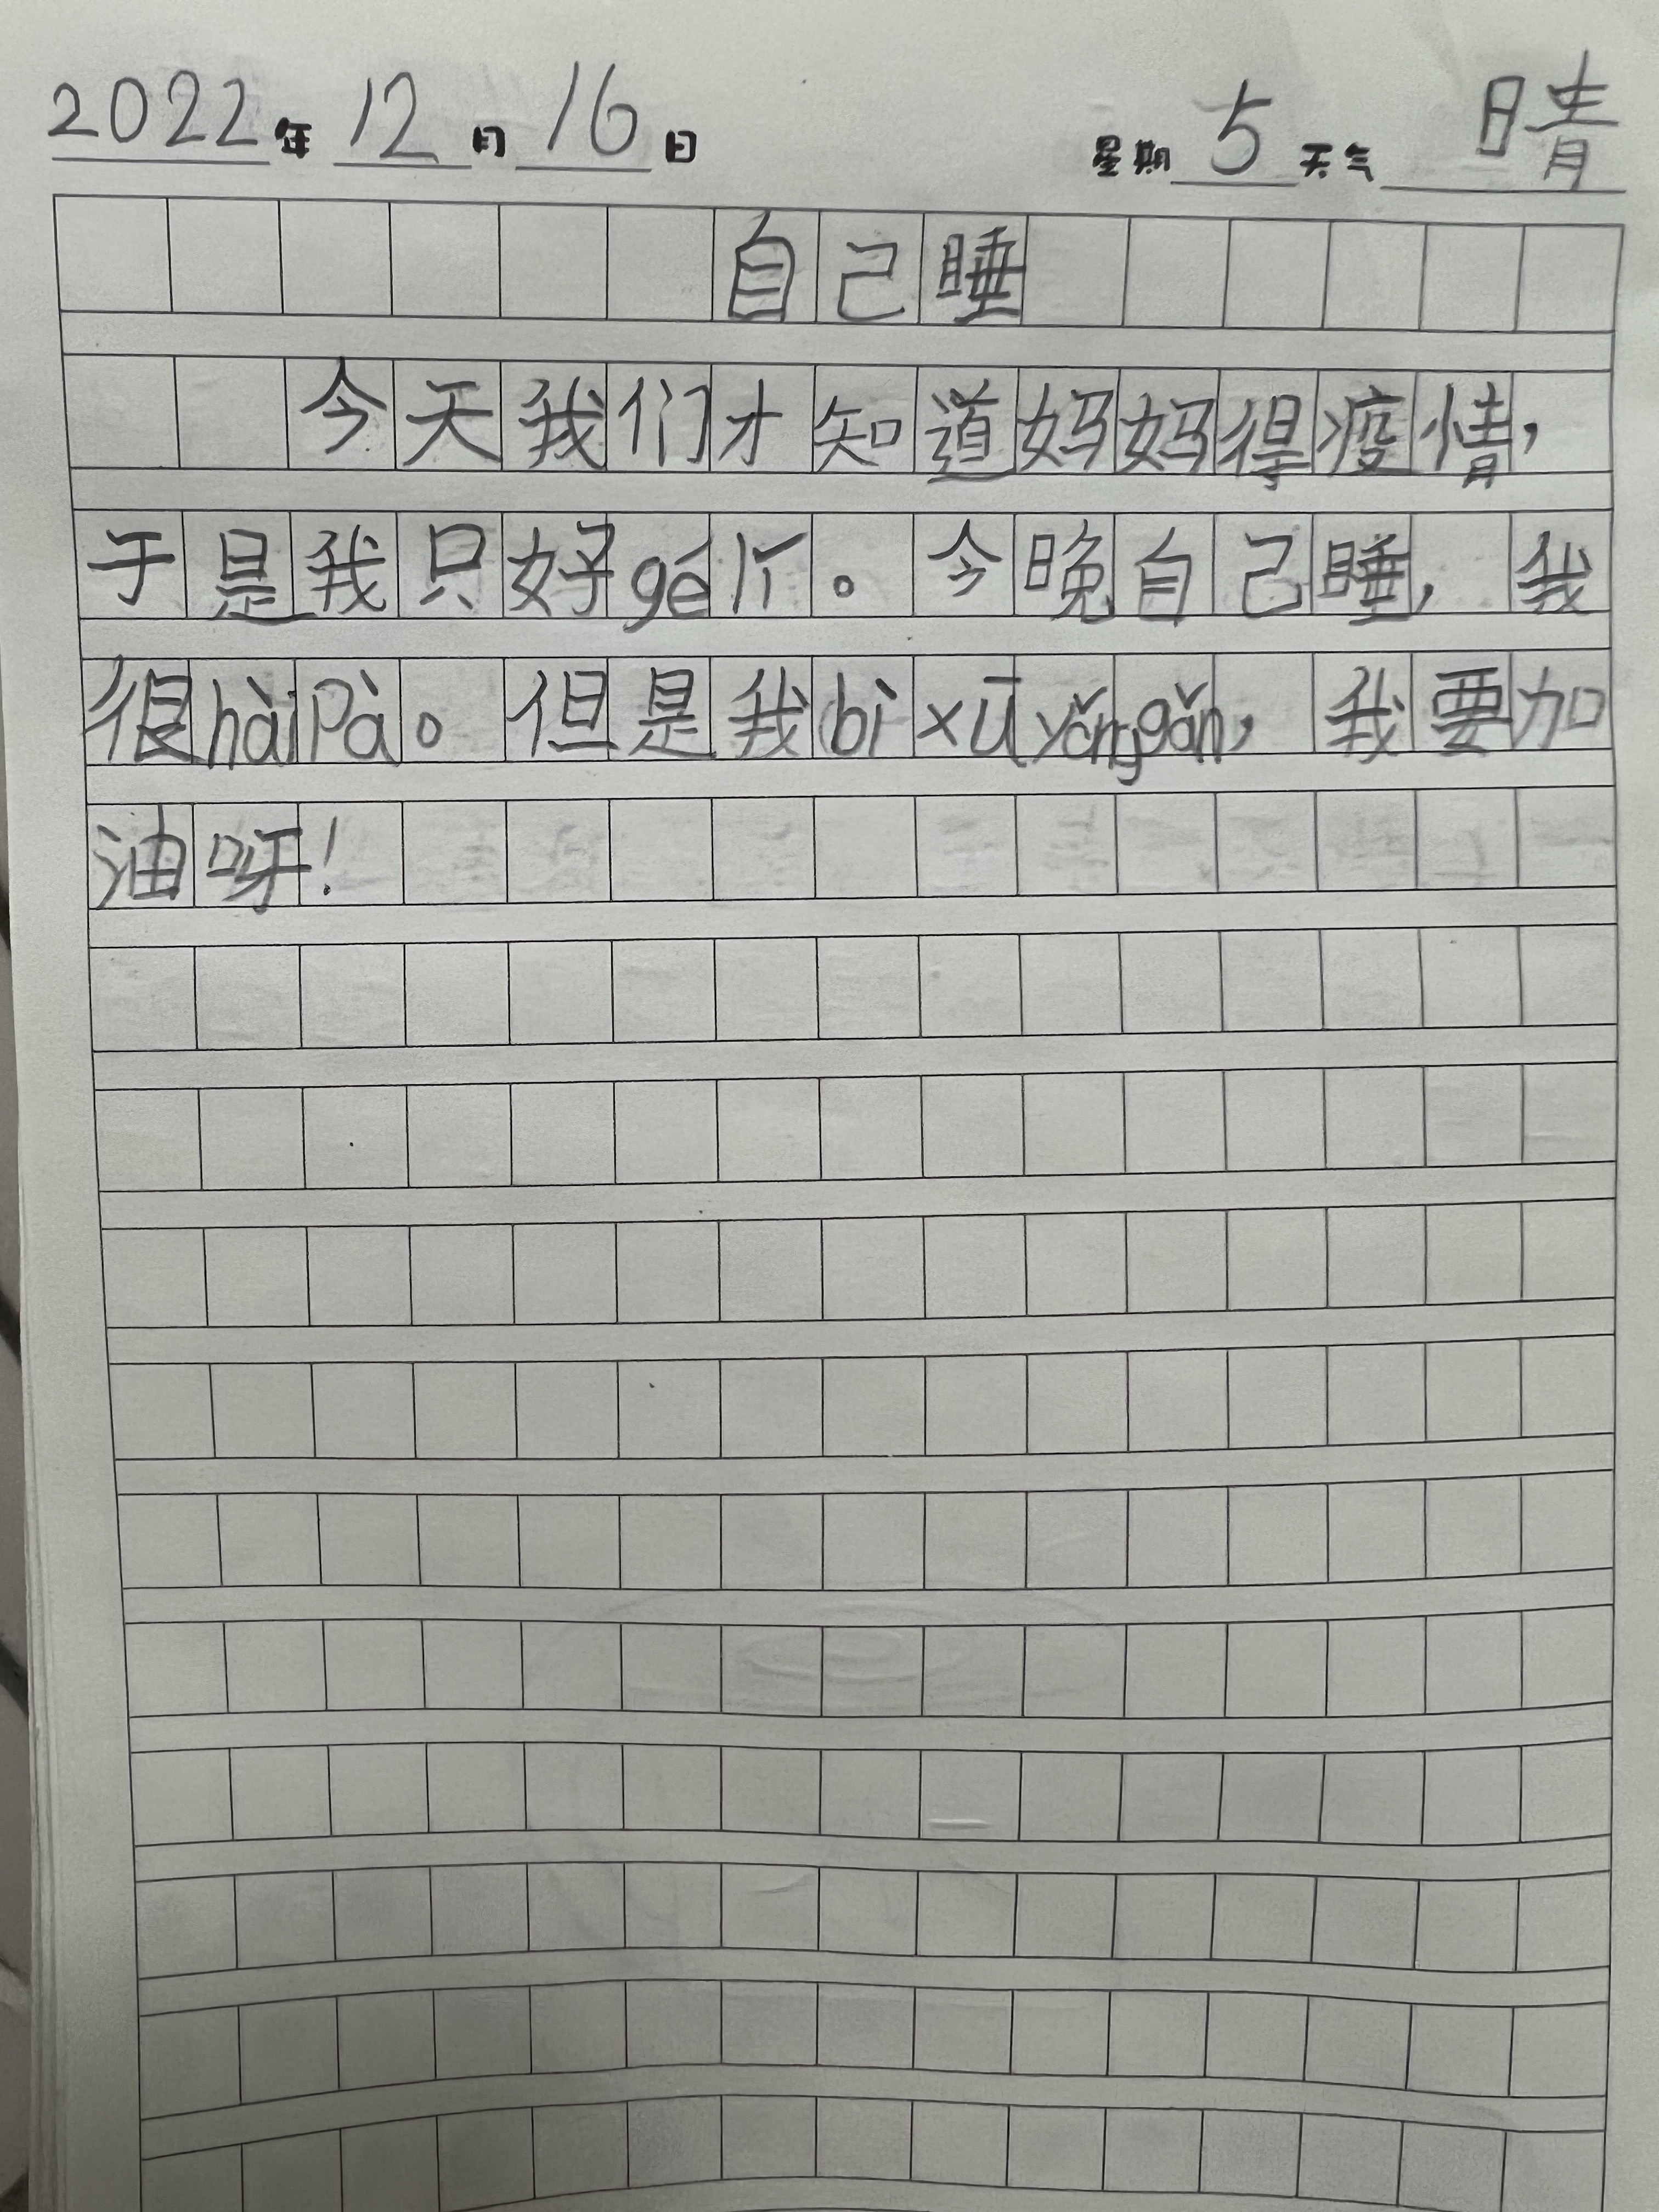 2022年12月16日 星期5天气晴
自己睡
今天我们才知道妈妈得疫情，
于是我只好gé lí。今晚自己睡，我
很hàipà。但是我bì xū yǒnggǎn，我要加
油呀！